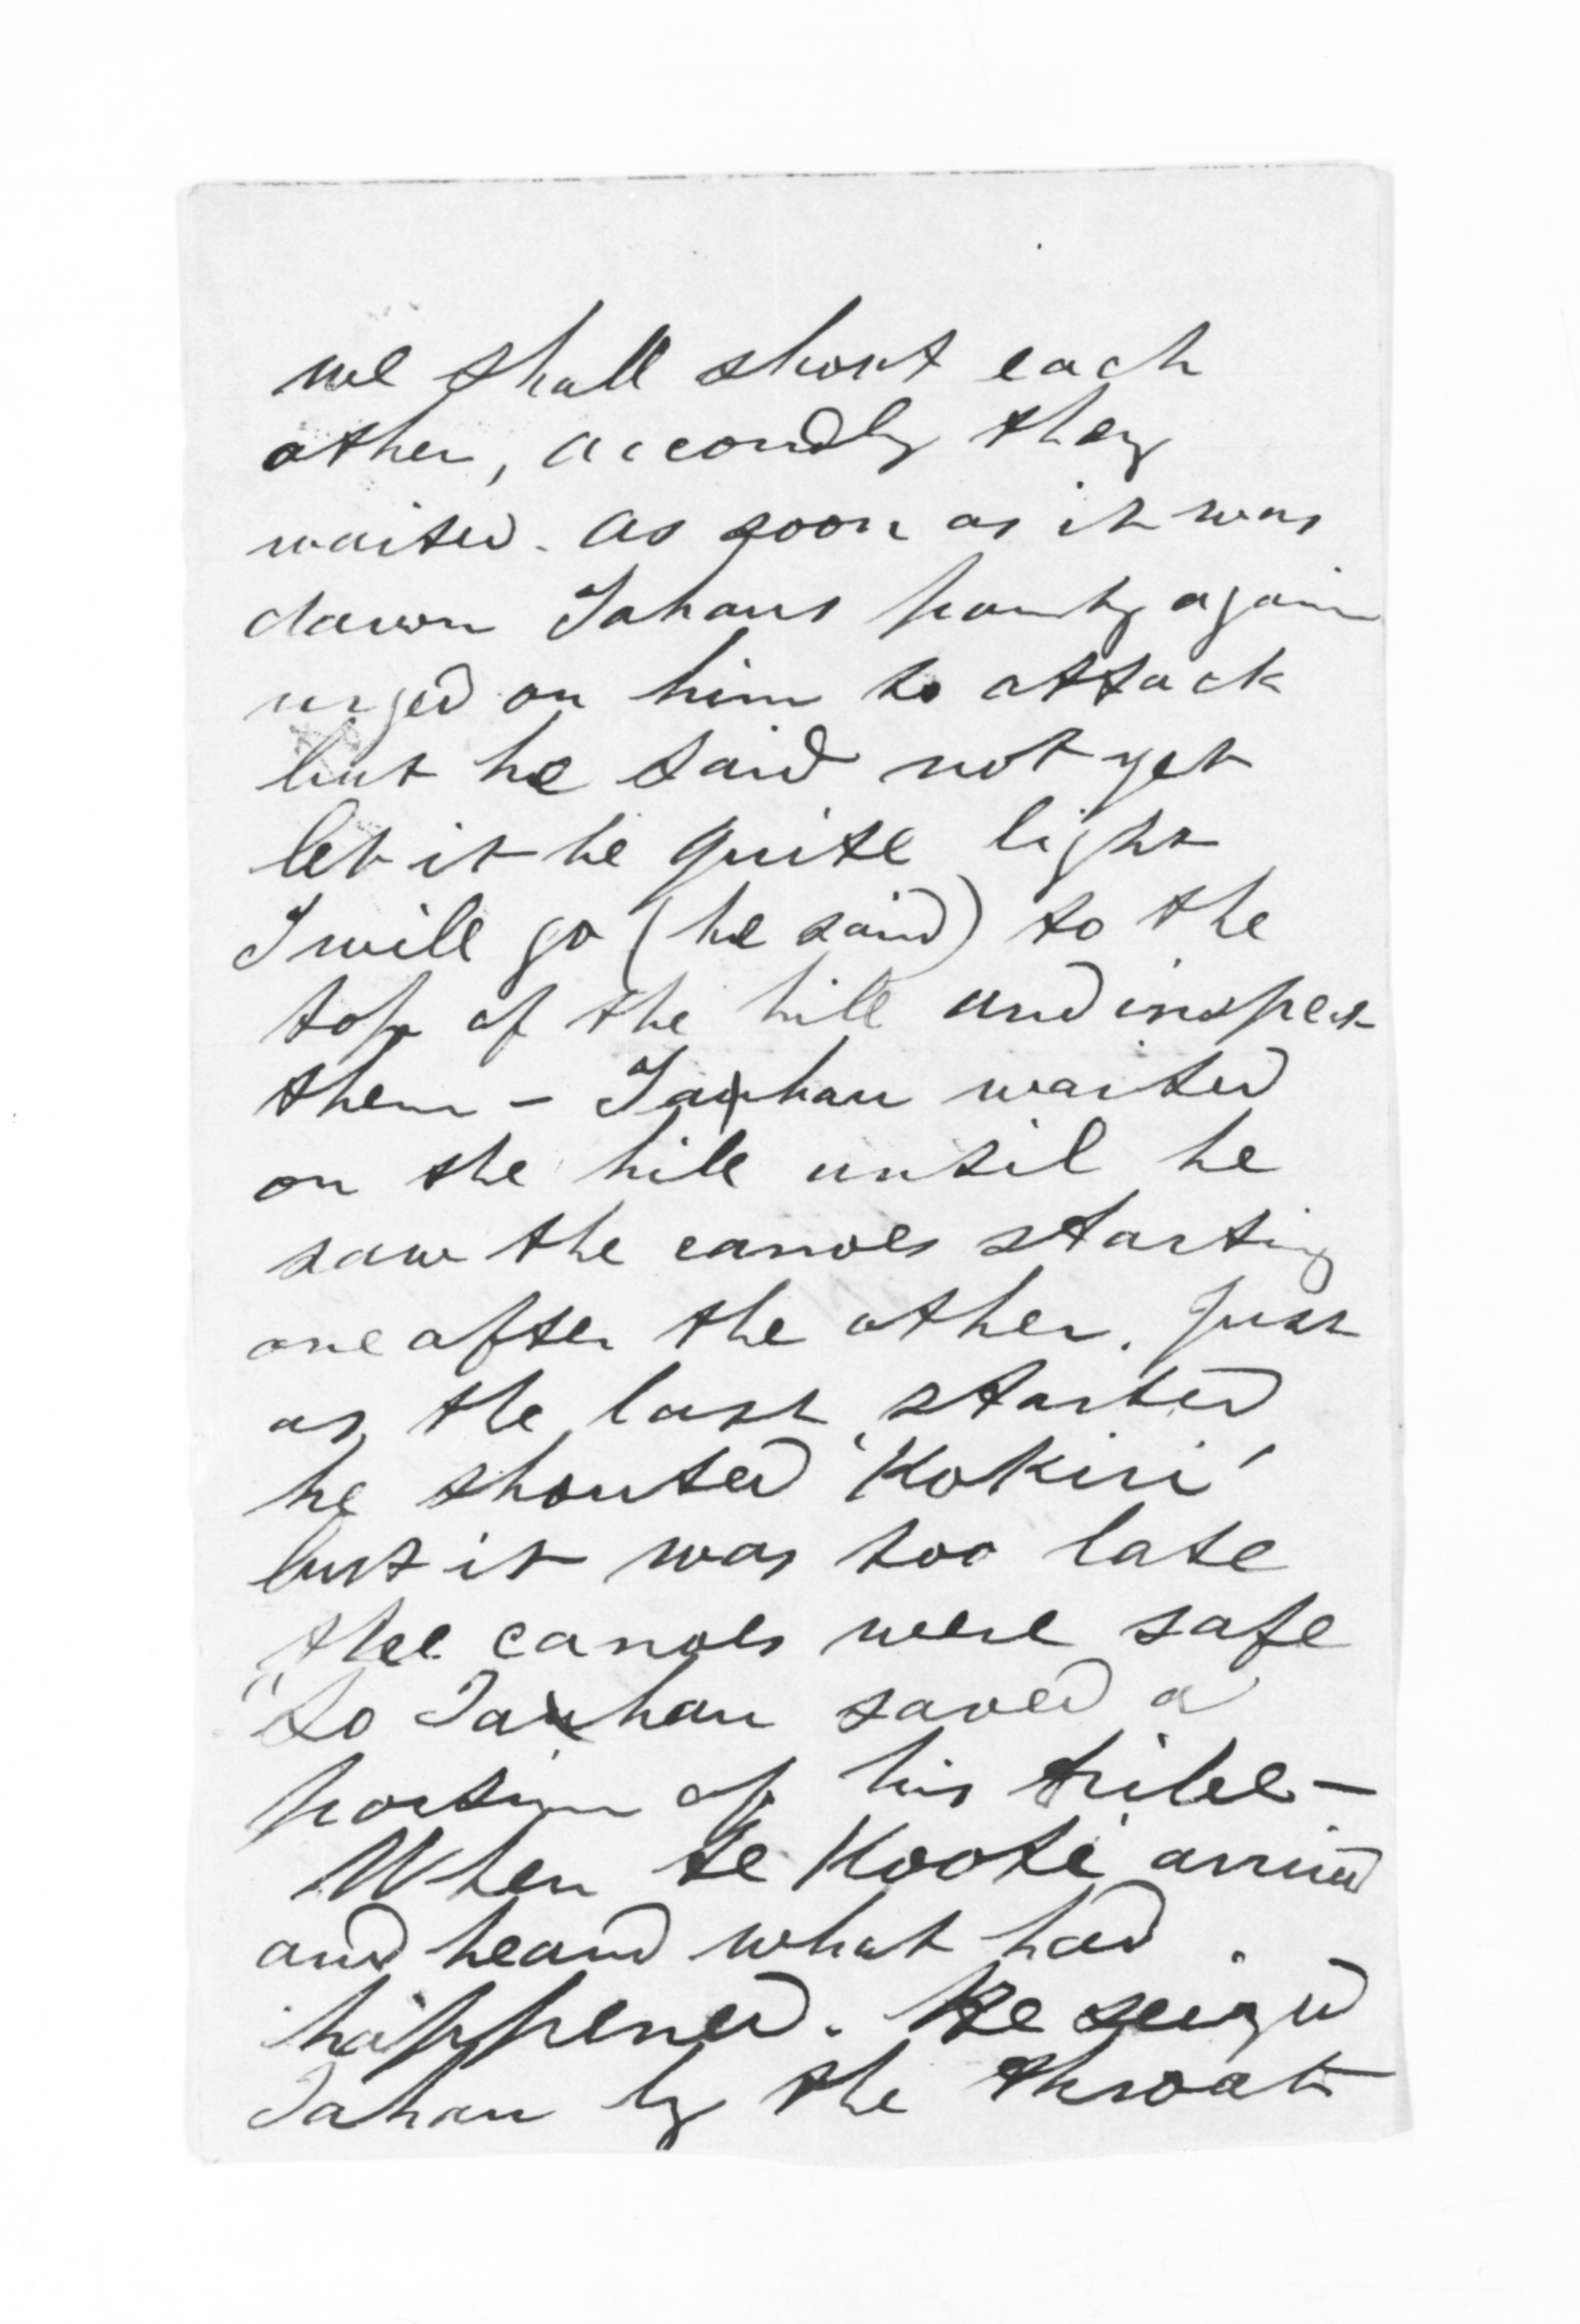 we shall shoot each
other, accordly they
waited. as soon as it was
dawn Tahaus party again
urged on him to attack
but he said not yet
let it be quite light
I will go (he said) to the
top of the hill and inspect
them - Tauhau waited
on the hill until he
saw the canoes starting
one after the other. Just
as the last started
he shouted 'Kokiri'
but it was too late
the canoes were safe
"So Tauhau saved a
portion of his tribe -
When te Kooti arrived
and heard what had
happened. He seized
Tahau by the throat